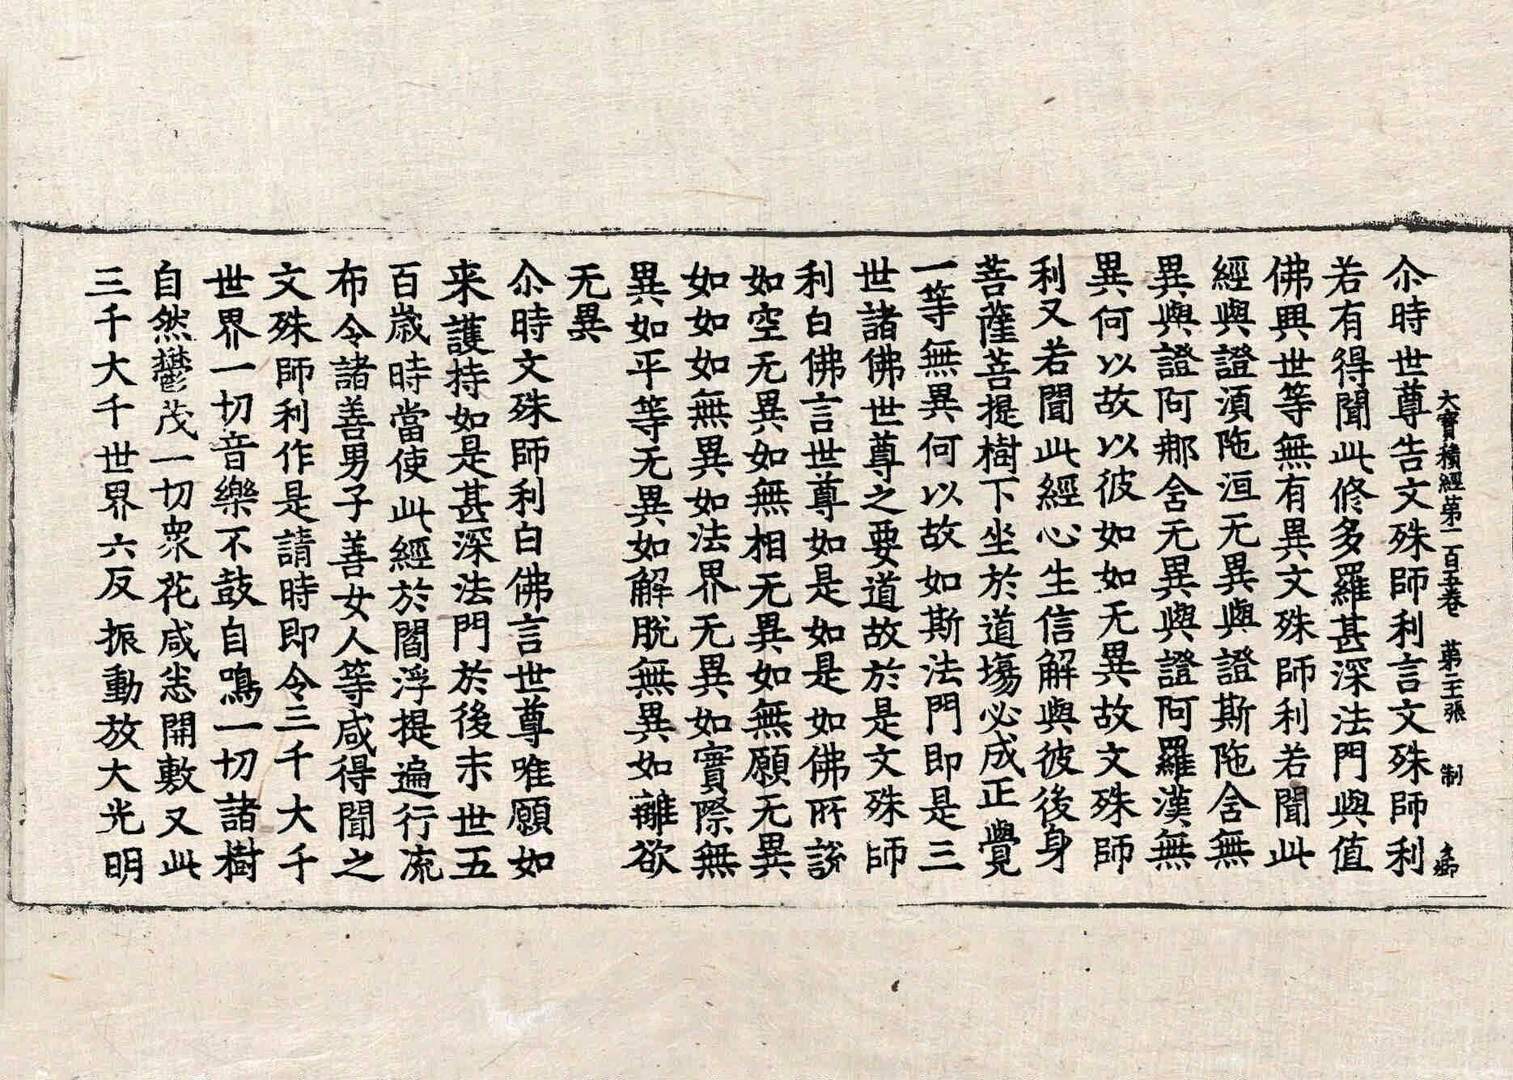 大寶積經第一百五卷　第二十張　制
尒時世尊告文殊師利言文殊師利
若有得聞此修多羅甚深法門與值
佛興世等無有異文殊師利若聞此
經與證須陁洹无異與證斯陁含無
異與證阿那含无異與證阿羅漢無
異何以故以彼如如无異故文殊師
利又若聞此經心生信解與彼後身
菩薩菩提樹下坐於道場必成正覺
一等無異何以故如斯法門即是三
世諸佛世尊之要道故於是文殊師
利白佛言世尊如是如是如佛所說
如空无異如無相无異如無願无異
如如如無異如法界无異如實際無
異如平等无異如解脫無異如離欲
无異
尒時文殊師利白佛言世尊唯願如
来護持如是甚深法門於後末世五
百歲時當使此經於閻浮提遍行流
布令諸善男子善女人等咸得聞之
文殊師利作是請時即令三千大千
世界一切音樂不鼓自鳴一切諸樹
自然鬱茂一切衆花咸悉開敷又此
三千大千世界六反振動放大光明